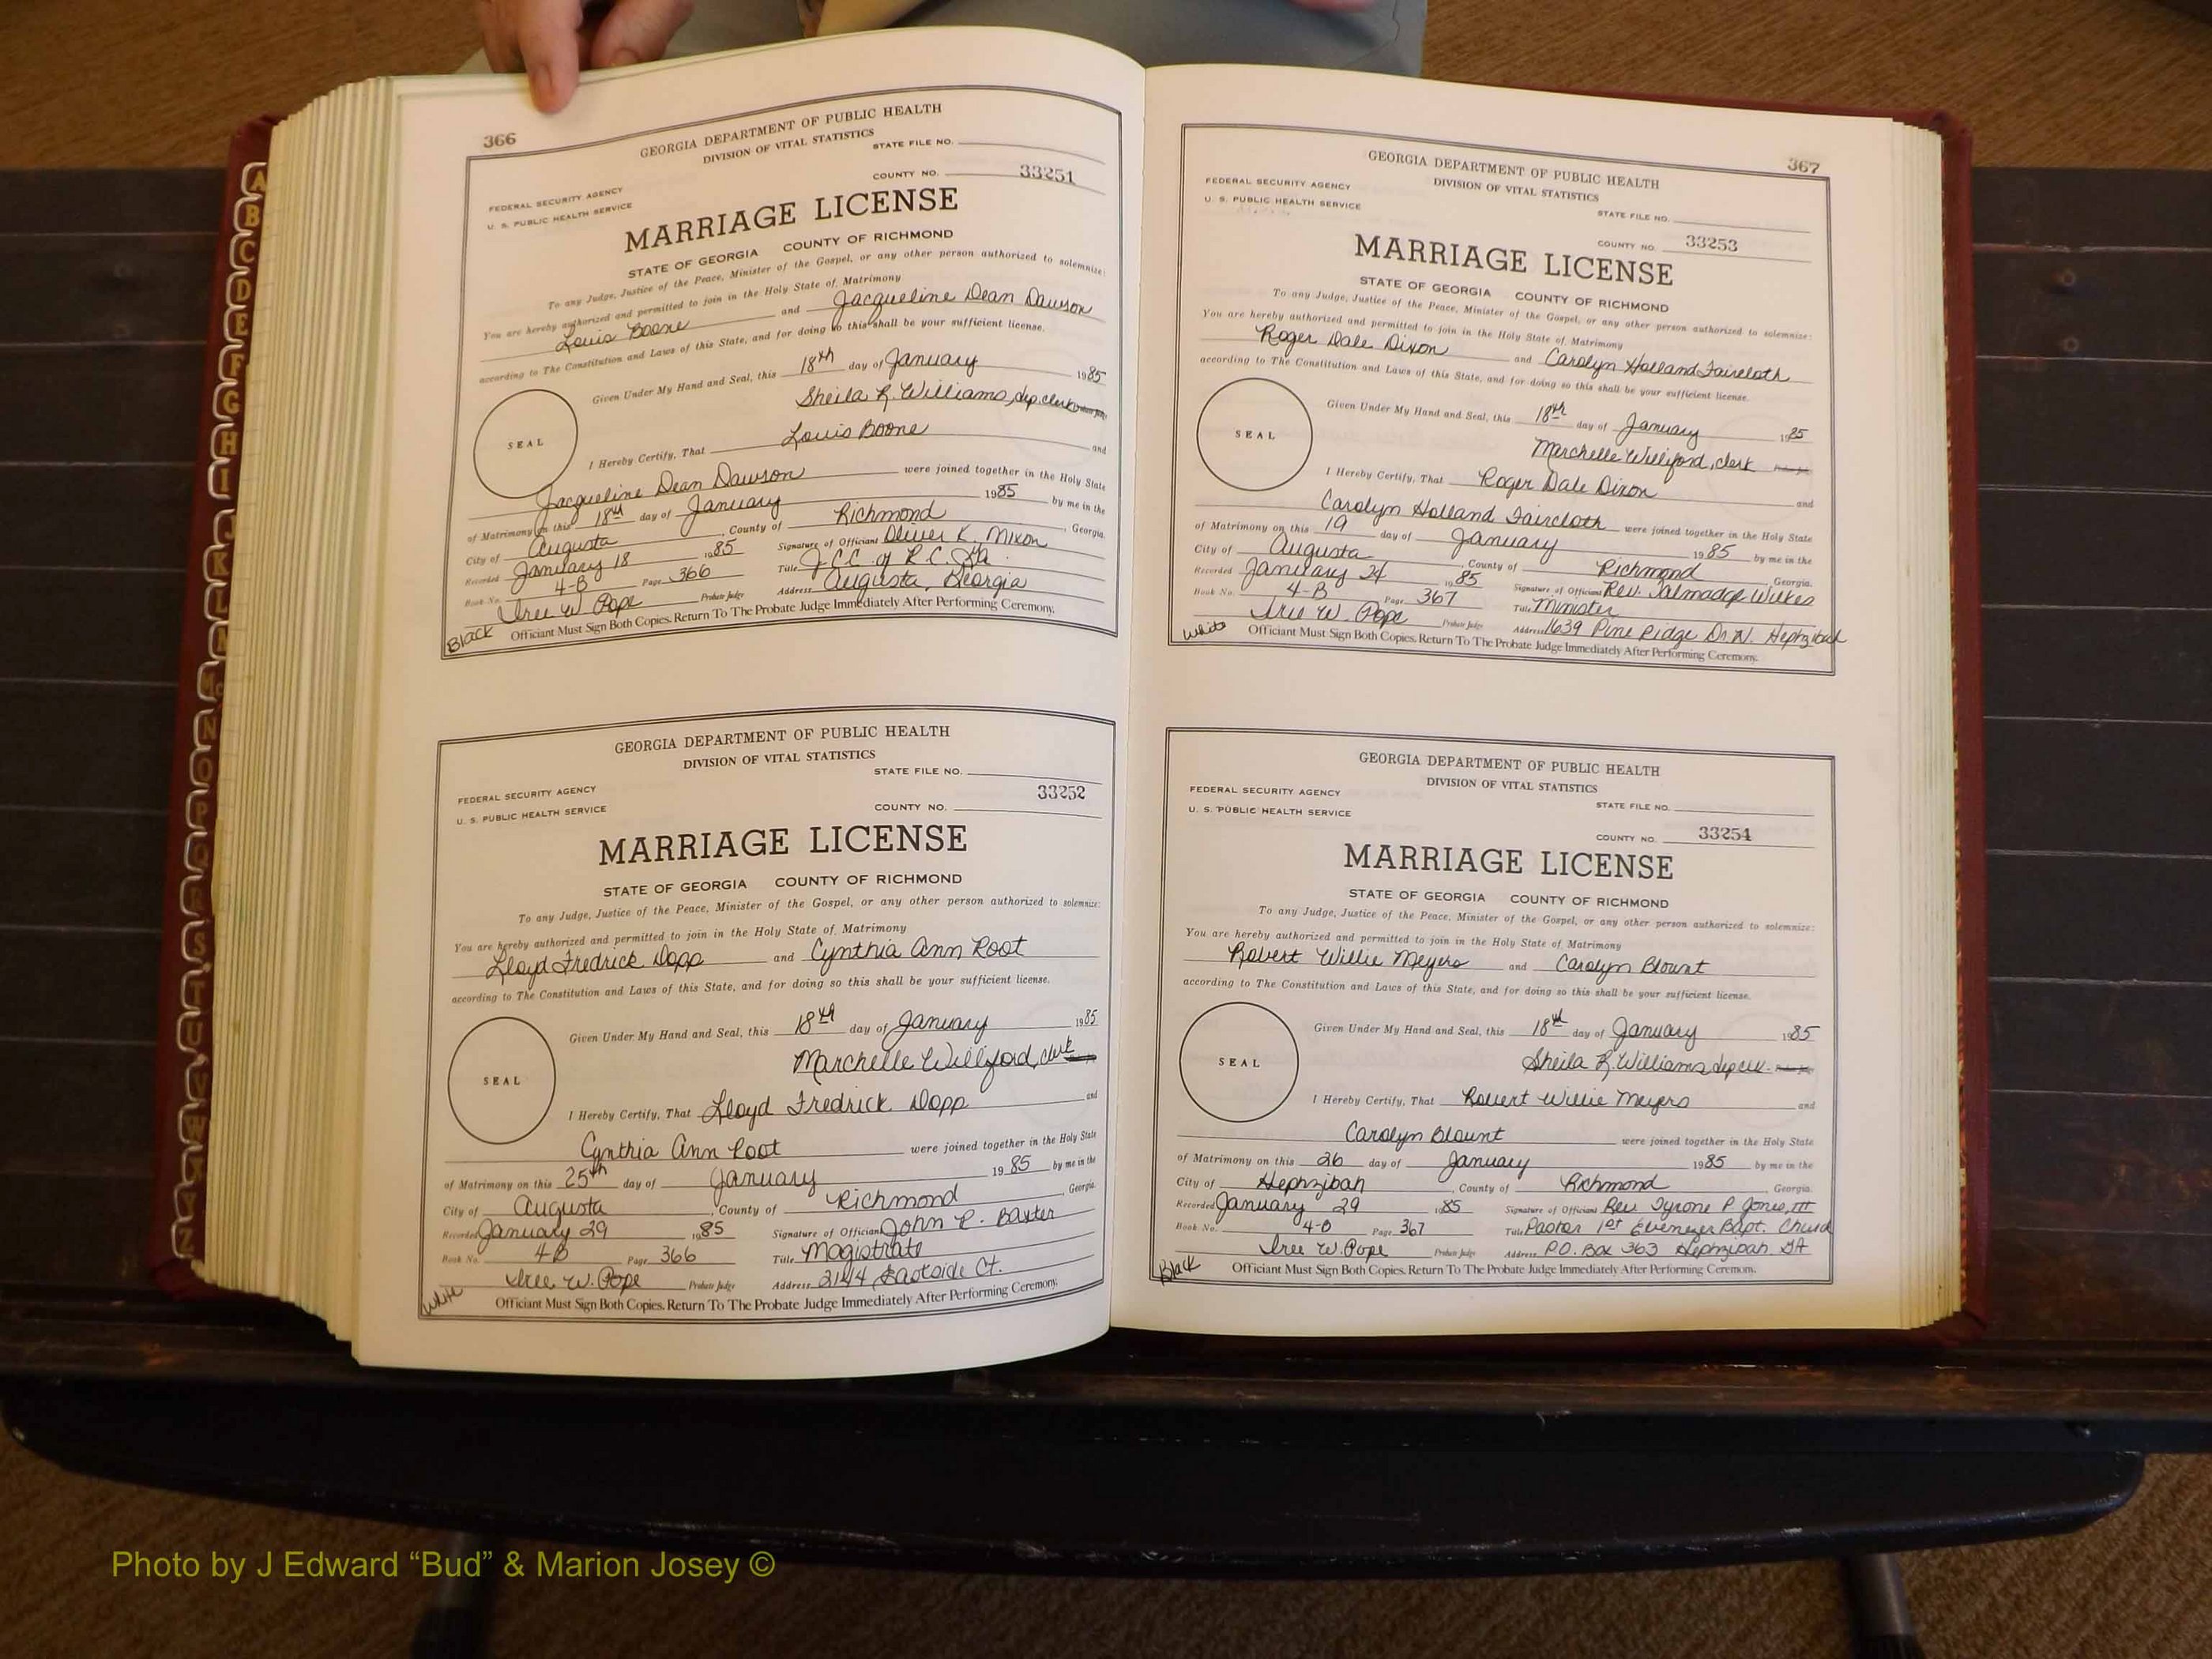 366
GEORGIA DEPARTMENT OF PUBLIC HEALTH
DIVISION OF VITAL STATISTICS
STATE FILE NO.
COUNTY NO. 33251
FEDERAL SECURITY AGENCY
U. S. PUBLIC HEALTH SERVICE
MARRIAGE LICENSE
STATE OF GEORGIA COUNTY OF RICHMOND
To any Judge, Justice of the Peace, Minister of the Gospel, or any other person authorized to solemnize:
You are hereby authorized and permitted to join in the Holy State of Matrimony
Louis Boone and Jacqueline Dean Dawson
according to The Constitution and Laws of this State, and for doing so this shall be your sufficient license.
Given Under My Hand and Seal, this 18th day of January 1985
Sheila R. Williams, dep. clerk
SEAL
I Hereby Certify, That Louis Boone and
Jacqueline Dean Dawson were joined together in the Holy State
of Matrimony on this 18th day of January 1985 by me in the
City of Augusta, County of Richmond, Georgia.
Recorded January 18 1985 Signature of Officiant Oliver K. Mixon
Book No. 4-B Page 366 Title J.C.C. of R.C. Ga.
Iree W. Pope Probate Judge Address Augusta, Georgia
Black Officiant Must Sign Both Copies. Return To The Probate Judge Immediately After Performing Ceremony.
GEORGIA DEPARTMENT OF PUBLIC HEALTH
DIVISION OF VITAL STATISTICS
STATE FILE NO.
FEDERAL SECURITY AGENCY
U. S. PUBLIC HEALTH SERVICE
COUNTY NO. 33252
MARRIAGE LICENSE
STATE OF GEORGIA COUNTY OF RICHMOND
To any Judge, Justice of the Peace, Minister of the Gospel, or any other person authorized to solemnize:
You are hereby authorized and permitted to join in the Holy State of Matrimony
Lloyd Fredrick Dopp and Cynthia Ann Root
according to The Constitution and Laws of this State, and for doing so this shall be your sufficient license.
Given Under My Hand and Seal, this 18th day of January 1985
Marchelle Williford, clerk
SEAL
I Hereby Certify, That Lloyd Fredrick Dopp and
Cynthia Ann Root were joined together in the Holy State
of Matrimony on this 25th day of January 1985 by me in the
City of Augusta, County of Richmond, Georgia.
Recorded January 29 1985 Signature of Officiant John R. Baxter
Book No. 4B Page 366 Title Magistrate
Iree W. Pope Probate Judge Address 2144 Eastside Ct.
White Officiant Must Sign Both Copies. Return To The Probate Judge Immediately After Performing Ceremony.
367
GEORGIA DEPARTMENT OF PUBLIC HEALTH
DIVISION OF VITAL STATISTICS
FEDERAL SECURITY AGENCY
U. S. PUBLIC HEALTH SERVICE
STATE FILE NO.
COUNTY NO. 33253
MARRIAGE LICENSE
STATE OF GEORGIA COUNTY OF RICHMOND
To any Judge, Justice of the Peace, Minister of the Gospel, or any other person authorized to solemnize:
You are hereby authorized and permitted to join in the Holy State of Matrimony
Roger Dale Dixon and Carolyn Holland Faircloth
according to The Constitution and Laws of this State, and for doing so this shall be your sufficient license.
Given Under My Hand and Seal, this 18th day of January 1985
Marchelle Williford, clerk
SEAL
I Hereby Certify, That Roger Dale Dixon and
Carolyn Holland Faircloth were joined together in the Holy State
of Matrimony on this 19 day of January 1985 by me in the
City of Augusta, County of Richmond, Georgia.
Recorded January 24 1985 Signature of Officiant Rev. Talmadge Wilkes
Book No. 4-B Page 367 Title Minister
Iree W. Pope Probate Judge Address 1639 Pine Ridge Dr. N. Hephzibah
White Officiant Must Sign Both Copies. Return To The Probate Judge Immediately After Performing Ceremony.
GEORGIA DEPARTMENT OF PUBLIC HEALTH
DIVISION OF VITAL STATISTICS
FEDERAL SECURITY AGENCY
U. S. PUBLIC HEALTH SERVICE
STATE FILE NO.
COUNTY NO. 33254
MARRIAGE LICENSE
STATE OF GEORGIA COUNTY OF RICHMOND
To any Judge, Justice of the Peace, Minister of the Gospel, or any other person authorized to solemnize:
You are hereby authorized and permitted to join in the Holy State of Matrimony
Robert Willie Meyers and Carolyn Blount
according to The Constitution and Laws of this State, and for doing so this shall be your sufficient license.
Given Under My Hand and Seal, this 18th day of January 1985
Sheila R. Williams, dep. clk.
SEAL
I Hereby Certify, That Robert Willie Meyers and
Carolyn Blount were joined together in the Holy State
of Matrimony on this 26 day of January 1985 by me in the
City of Hephzibah, County of Richmond, Georgia.
Recorded January 29 1985 Signature of Officiant Rev Tyrone P Jones, III
Book No. 4-B Page 367 Title Pastor 1st Ebenezer Bapt. Church
Iree W. Pope Probate Judge Address P.O. Box 363 Hephzibah GA
Black Officiant Must Sign Both Copies. Return To The Probate Judge Immediately After Performing Ceremony.
A
B
C
D
E
F
G
H
I
J
K
L
M
Mc
N
O
P
Q
R
S
T
U
V
W
Y
Z
Photo by J Edward “Bud” & Marion Josey ©